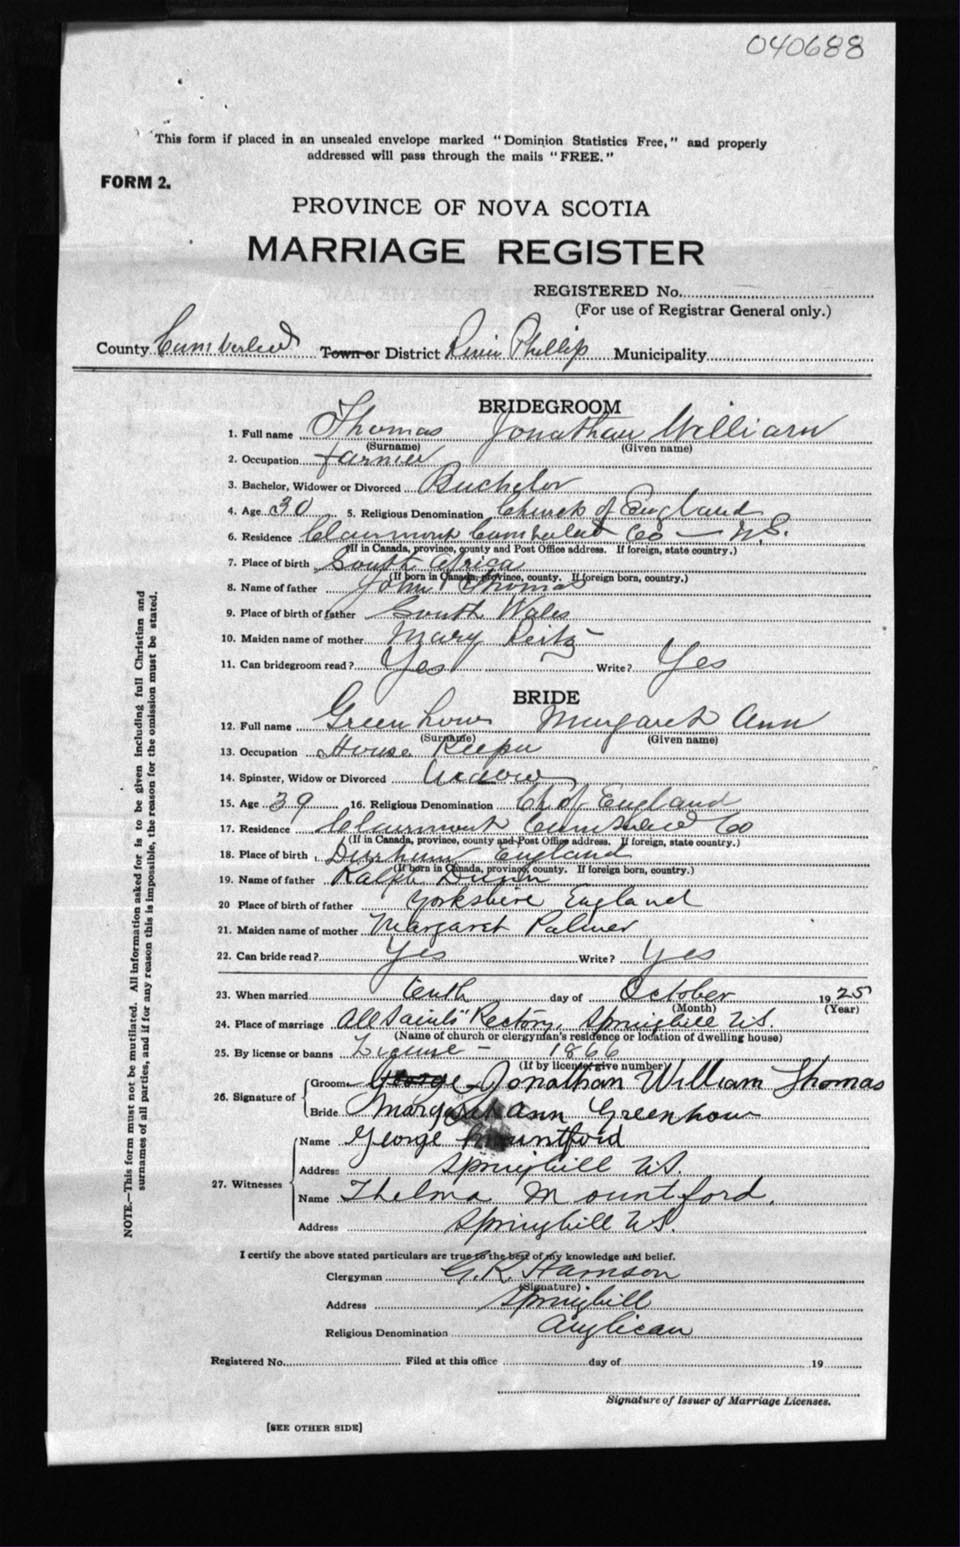 040688
This form if placed in an unsealed envelope marked "Dominion Statistics Free," and properly
addressed will pass through the mails "FREE."
FORM 2.
PROVINCE OF NOVA SCOTIA
MARRIAGE REGISTER
REGISTERED No.
(For use of Registrar General only.)
County Cumberland Town or District River Phillip Municipality
BRIDEGROOM
1. Full name Thomas Jonathan William
(Surname) (Given name)
2. Occupation farmer
3. Bachelor, Widower or Divorced Bachelor
4. Age 30 5. Religious Denomination Church of England
6. Residence Claremont Cumberland Co — N.S.
(If in Canada, province, county and Post Office address. If foreign, state country.)
7. Place of birth South Africa
(If born in Canada, province, county. If foreign born, country.)
8. Name of father John Thomas
9. Place of birth of father South Wales
10. Maiden name of mother Mary Reitz
11. Can bridegroom read? Yes Write? Yes
BRIDE
12. Full name Greenhow Margaret Ann
(Surname) (Given name)
13. Occupation House Keeper
14. Spinster, Widow or Divorced Widow
15. Age 39 16. Religious Denomination Ch of England
17. Residence Clairmont Cumberland Co
(If in Canada, province, county and Post Office address. If foreign, state country.)
18. Place of birth Durham England
(If born in Canada, province, county. If foreign born, country.)
19. Name of father Ralph Dunn
20 Place of birth of father Yorkshire England
21. Maiden name of mother Margaret Palmer
22. Can bride read? Yes Write? Yes
23. When married tenth day of October 1925
(Month) (Year)
24. Place of marriage All Saints" Rectory, Springhill N.S.
(Name of church or clergyman's residence or location of dwelling house)
25. By license or banns License — 1866
(If by license give number)
26. Signature of Groom George Jonathan William Thomas
Bride Margaret Ann Greenhow
27. Witnesses Name George Mountford
Address Springhill N.S.
Name Thelma Mountford.
Address Springhill N.S.
I certify the above stated particulars are true to the best of my knowledge and belief.
Clergyman G.R. Harrison
(Signature)
Address Springhill
Religious Denomination Anglican
Registered No. Filed at this office day of 19
Signature of Issuer of Marriage Licenses.
[SEE OTHER SIDE]
NOTE.—This form must not be mutilated. All information asked for is to be given including full Christian and
surnames of all parties, and if for any reason this is impossible, the reason for the omission must be stated.